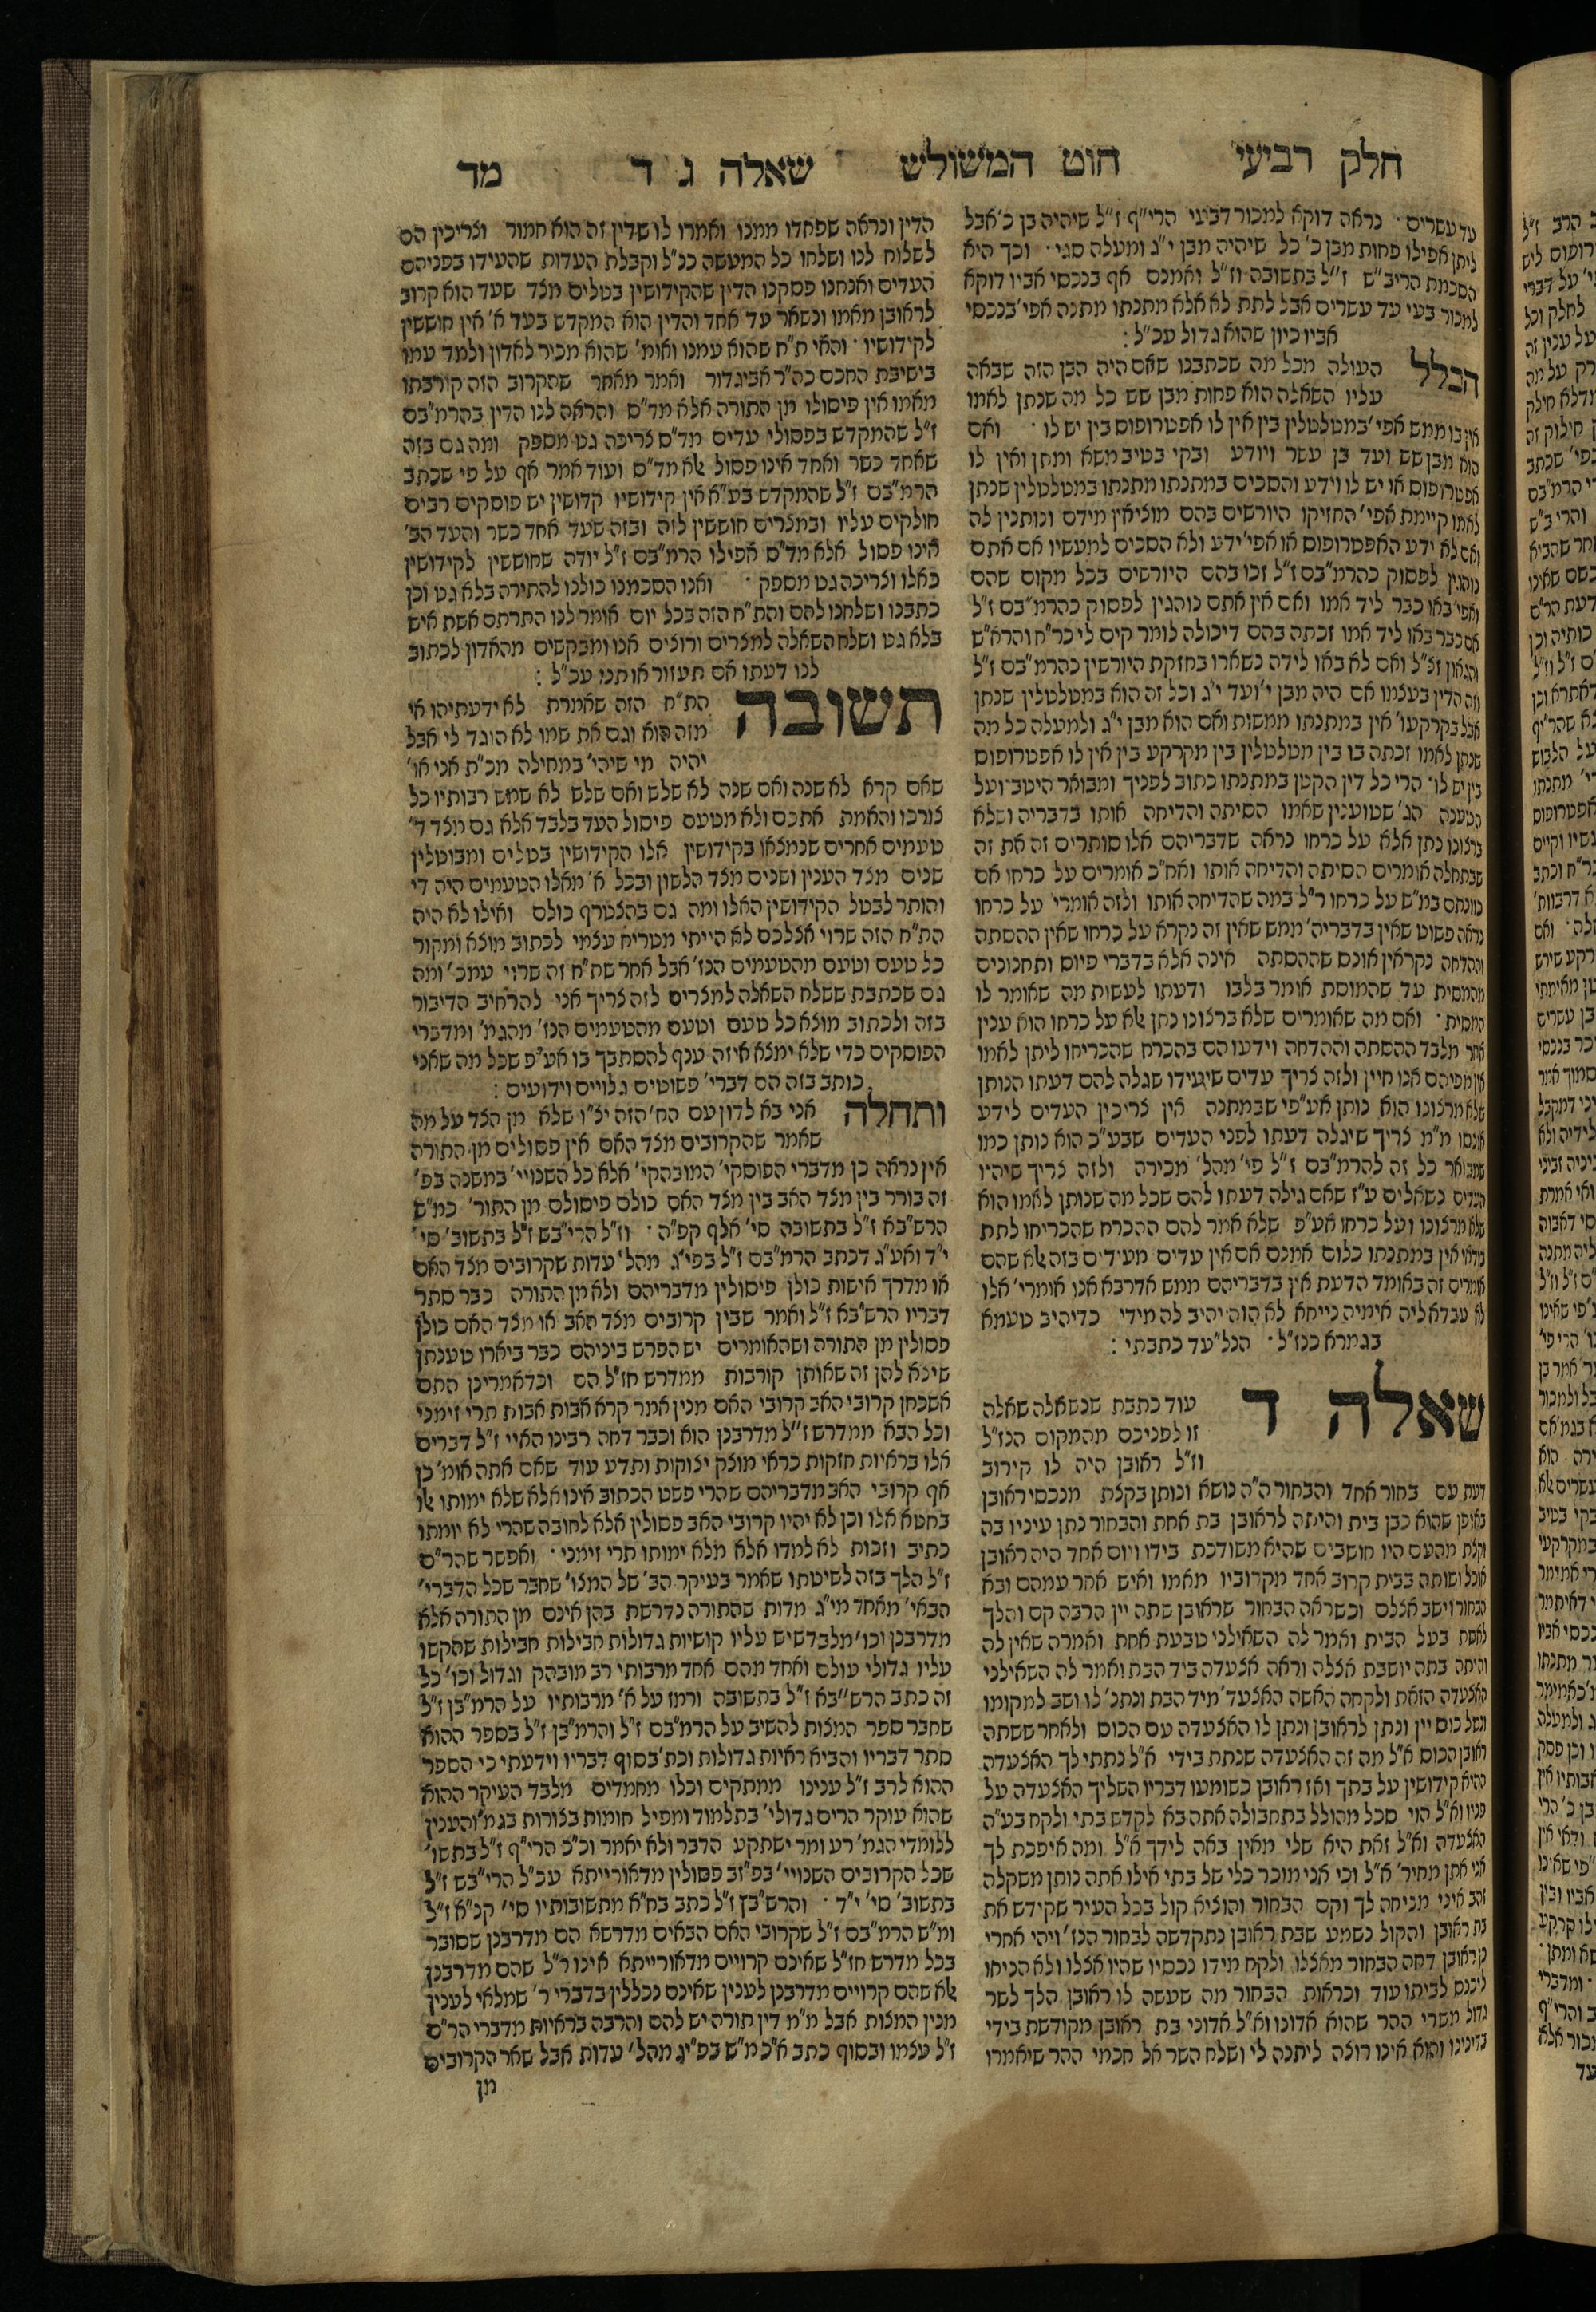 חלק רביעי חוט המשולש שאלה ג ד מד
עד עשרים · נראה דוקא למכור דבעי הרי״ף ז״ל שיהיה בן כ׳ אבל
ליתן אפילו פחות מבן כ׳ כל שיהיה מבן י״ג ומעלה סגי · וכך היא
הסכמת הריב״ש ז״ל בתשובה וז״ל ואמנם אף בנכסי אביו דוקא
למכור בעי עד עשרים אבל לתת לא אלא מתנתו מתנה אפי׳ בנכסי
אביו כיון שהוא גדול עכ״ל :
הכלל העולה מכל מה שכתבנו שאם היה הבן הזה שבאה
עליו השאלה הוא פחות מבן שש כל מה שנתן לאמו
אין בו ממש אפי׳ במטלטלין בין אין לו אפטרופוס בין יש לו · ואם
הוא מבן שש ועד בן עשר ויודע ובקי בטיב משא ומתן ואין לו
אפטרופוס או יש לו וידע והסכים במתנתו מתנתו במטלטלין שנתן
לאמו קיימת אפי׳ החזיקו היורשים בהם מוציאין מידם ונותנין לה
ואם לא ידע האפטרופוס או אפי׳ ידע ולא הסכים למעשיו אם אתם
נוהגין לפסוק כהרמ״בם ז״ל זכו בהם היורשים בכל מקום שהם
ואפי׳ באו כבר ליד אמו ואם אין אתם נוהגין לפסוק כהרמ״בם ז״ל
אם כבר באו ליד אמו זכתה בהם דיכולה לומר קים לי כר״ח והרא״ש
והגאון זצ״ל ואם לא באו לידה נשארו בחזקת היורשין כהרמ״בם ז״ל
וזה הדין בעצמו אם היה מבן י׳ ועד י״ג וכל זה הוא במטלטלין שנתן
אבל בקרקעו׳ אין במתנתו ממשות ואם הוא מבן י״ג ולמעלה כל מה
שנתן לאמו זכתה בו בין מטלטלין בין מקרקע בין אין לו אפטרופוס
בין יש לו · הרי כל דין הקטן במתנתו כתוב לפניך ומבואר היטב · ועל
הטענה הג׳ שטוענין שאמו הסיתה והדיחה אותו בדבריה ושלא
ברצונו נתן אלא על כרחו נראה שדבריהם אלו סותרים זה את זה
שבתחלה אומרים הסיתה והדיחה אותו ואח״כ אומרים על כרחו אם
כוונתם במ״ש על כרחו ר״ל במה שהדיחה אותו ולזה אומרי׳ על כרחו
נראה פשוט שאין בדבריה׳ ממש שאין זה נקרא על כרחו שאין ההסתה
וההדחה נקראין אונס שההסתה אינה אלא בדברי פיוס ותחנונים
מהמסית עד שהמוסת אומר בלבו ודעתו לעשות מה שאומר לו
המסית · ואם מה שאומרים שלא ברצונו נתן אלא על כרחו הוא ענין
אחר מלבד ההסתה וההדחה וידעו הם בהכרח שהכריחו ליתן לאמו
אין מפיהם אנו חיין ולזה צריך עדים שיעידו שגלה להם דעתו הנותן
שלא מרצונו הוא נותן אע״פי שבמתנה אין צריכין העדים לידע
אונסו מ״מ צריך שיגלה דעתו לפני העדים שבע״כ הוא נותן כמו
שמבואר כל זה להרמ״בם ז״ל פי׳ מהל׳ מכירה ולזה צריך שיהיו
העדים נשאלים ע״ז שאם גילה דעתו להם שכל מה שנותן לאמו הוא
שלא מרצונו ועל כרחו אע״פ שלא אמר להם ההכרח שהכריחו לתת
מדאי אין במתנתו כלום אמנם אם אין עדים מעידים בזה אלא שהם
אומרים זה באומד הדעת אין בדבריהם ממש אדרבא אנו אומרי׳ אלו
לא עבדא ליה אימיה נייחא לא הוה יהיב לה מידי כדיהיב טעמא
בגמרא כנז״ל · הנל״עד כתבתי :
שאלה ד עוד כתבת שנשאלה שאלה
זו לפניכם מהמקום הנז״ל
וז״ל ראובן היה לו קירוב
דעת עם בחור אחד והבחור ה״ה נושא ונותן בקצת מנכסי ראובן
באופן שהוא כבן בית והיתה לראובן בת אחת והבחור נתן עיניו בה
וקצת מהעם היו חושבים שהיא משודכת בידו ויום אחד היה ראובן
אוכל ושותה בבית קרוב אחד מקרוביו מאמו ואיש אחר עמהם ובא
הבחור וישב אצלם וכשראה הבחור שראובן שתה יין הרבה קם והלך
לאשת בעל הבית ואמר לה השאילני טבעת אחת ואמרה שאין לה
והיתה בתה יושבת אצלה וראה אצעדה ביד הבת ואמר לה השאילני
האצעדה הזאת ולקחה האשה האצעד׳ מיד הבת ונתנ׳ לו ושב למקומו
ונטל כוס יין ונתן לראובן ונתן לו האצעדה עם הכוס ולאחר ששתה
ראובן הכוס א״ל מה זה האצעדה שנתת בידי א״ל נתתי לך האצעדה
ההיא קידושין על בתך ואז ראובן כשומעו דבריו השליך האצעדה על
פניו וא״ל הוי סכל מהולל בתחבולה אתה בא לקדש בתי ולקח בע״ה
האצעדה וא״ל זאת היא שלי מאין באה לידך א״ל ומה איפכת לך
אני אתן מחיר׳ א״ל וכי אני מוכר כלי של בתי אילו אתה נותן משקלה
זהב איני מניחה לך וקם הבחור והוציא קול בכל העיר שקידש את
בת ראובן והקול נשמע שבת ראובן נתקדשה לבחור הנז׳ ויהי אחרי
כן ראובן דחה הבחור מאצלו ולקח מידו נכסיו שהיו אצלו ולא הניחו
ליכנס לביתו עוד וכראות הבחור מה שעשה לו ראובן הלך לשר
גדול משרי ההר שהוא אדונו וא״ל אדוני בת ראובן מקודשת בידי
בדינינו והוא אינו רוצה ליתנה לי ושלח השר אל חכמי ההר שיאמרו
הדין ונראה שפחדו ממנו ואמרו לו שדין זה הוא חמור וצריכין הם
לשלוח לנו ושלחו כל המעשה כנ״ל וקבלת העדות שהעידו בפניהם
העדים ואנחנו פסקנו הדין שהקידושין בטלים מצד שעד הוא קרוב
לראובן מאמו ונשאר עד אחד והדין הוא המקדש בעד א׳ אין חוששין
לקידושיו · והאי ת״ח שהוא עמנו ואומ׳ שהוא מכיר לאדון ולמד עמו
בישיבת החכם כה״ר אביגדור ואמר מאחר שהקרוב הזה קורבתו
מאמו אין פיסולו מן התורה אלא מד״ס והראה לנו הדין בהרמ״בם
ז״ל שהמקדש בפסולי עדים מד״ס צריכה גט מספק ומה גם בזה
שאחד כשר ואחד אינו פסול אלא מד״ס ועוד אמר אף על פי שכתב
הרמ״בם ז״ל שהמקדש בע״א אין קידושיו קדושין יש פוסקים רבים
חולקים עליו ובמצרים חוששין לזה ובזה שעד אחד כשר והעד הב׳
אינו פסול אלא מד״ס אפילו הרמ״בם ז״ל יודה שחוששין לקידושין
כאלו וצריכה גט מספק · ואנו הסכמנו כולנו להתירה בלא גט וכן
כתבנו ושלחנו להם והת״ח הזה בכל יום אומר לנו התרתם אשת איש
בלא גט ושלח השאלה למצרים ורוצים אנו ומבקשים מהאדון לכתוב
לנו דעתו אם תעזור אותנו עכ״ל :
תשובה הת״ח הזה שאמרת לא ידעתיהו אי
מזה הוא וגם את שמו לא הוגד לי אבל
יהיה מי שיהי׳ במחילה מכ״ת אני או׳
שאם קרא לא שנה ואם שנה לא שלש ואם שלש לא שמש רבותיו כל
צורכו והאמת אתכם ולא מטעם פיסול העד בלבד אלא גם מצד ד׳
טעמים אחרים שנמצאו בקידושין אלו הקידושין בטלים ומבוטלין
שנים מצד הענין ושנים מצד הלשון ובכל א׳ מאלו הטעמים היה די
והותר לבטל הקידושין האלו ומה גם בהצטרף כולם ואילו לא היה
הת״ח הזה שרוי אצלכם לא הייתי מטריח עצמי לכתוב מוצא ומקור
כל טעם וטעם מהטעמים הנז׳ אבל אחר שת״ח זה שרוי עמכ׳ ומה
גם שכתבת ששלח השאלה למצרים לזה צריך אני להרחיב הדיבור
בזה ולכתוב מוצא כל טעם וטעם מהטעמים הנז׳ מהגמ׳ ומדברי
הפוסקים כדי שלא ימצא איזה ענף להסתבך בו אע״פ שכל מה שאני
כותב בזה הם דברי׳ פשוטים גלויים וידועים :
ותחלה אני בא לדון עם הח׳ הזה יצ״ו שלא מן הצד על מה
שאמר שהקרובים מצד האם אין פסולים מן התורה
אין נראה כן מדברי הפוסקי׳ המובהקי׳ אלא כל השנויי׳ במשנה בפ׳
זה בורר בין מצד האב בין מצד האם כולם פיסולם מן התור׳ כמ״ש
הרש״בא ז״ל בתשובה סי׳ אלף קפ״ה · וז״ל הרי״בש ז״ל בתשוב׳ סי׳
י״ד ואע״ג דכתב הרמ״בם ז״ל בפי״ג מהל׳ עדות שקרובים מצד האם
או מדרך אישות כולן פיסולין מדבריהם ולא מן התורה כבר סתר
דבריו הרש״בא ז״ל ואמר שבין קרובים מצד האב או מצד האם כולן
פסולין מן התורה ושהאומרים יש הפרש ביניהם כבר ביארו טענתן
שיצא להן זה שאותן קורבות ממדרש חז״ל הם וכדאמרינן התם
אשכחן קרובי האב קרובי האם מנין אמר קרא אבות אבות תרי זימני
וכל הבא ממדרש ז״ל מדרבנן הוא וכבר דחה רבינו האיי ז״ל דברים
אלו בראיות חזקות כראי מוצק יצוקות ותדע עוד שאם אתה אומ׳ כן
אף קרובי האב מדבריהם שהרי פשט הכתוב אינו אלא שלא ימותו אלו
בחטא אלו וכן לא יהיו קרובי האב פסולין אלא לחובה שהרי לא יומתו
כתיב וזכות לא למדו אלא מלא ימותו תרי זימני · ואפשר שהר״ם
ז״ל הלך בזה לשיטתו שאמר בעיקר הב׳ של המצו׳ שחבר שכל הדברי׳
הבאי׳ מאחד מי״ג מדות שהתורה נדרשת בהן אינם מן התורה אלא
מדרבנן וכו׳ מלבד שיש עליו קושיות גדולות חבילות חבילות שהקשו
עליו גדולי עולם ואחד מהם אחד מרבותי רב מובהק וגדול וכו׳ כל
זה כתב הרש״בא ז״ל בתשובה ורמז על א׳ מרבותיו על הרמ״בן ז״ל
שחבר ספר המצות להשיב על הרמ״בם ז״ל והרמ״בן ז״ל בספר ההוא
סתר דבריו והביא ראיות גדולות וכת׳ בסוף דבריו וידעתי כי הספר
ההוא לרב ז״ל ענינו ממתקים וכלו מחמדים מלבד העיקר ההוא
שהוא עוקר הרים גדולי׳ בתלמוד ומפיל חומות בצורות בגמ׳ והענין
ללומדי הגמ׳ רע ומר ישתקע הדבר ולא יאמר וכ״כ הרי״ף ז״ל בתשו׳
שכל הקרובים השנויי׳ בפ״זב פסולין מדאורייתא עכ״ל הרי״בש ז״ל
בתשוב׳ סי׳ י״ד · והרש״בץ ז״ל כתב בח״א מתשובותיו סי׳ קכ״א ז״ל
ומ״ש הרמ״בם ז״ל שקרובי האם הבאים מדרשא הם מדרבנן שסובר
בכל מדרש חז״ל שאינם קרויים מדאורייתא אינו ר״ל שהם מדרבנן
אלא שהם קרויים מדרבנן לענין שאינם נכללין בדברי ר׳ שמלאי לענין
מנין המצות אבל מ״מ דין תורה יש להם והרבה בראיות מדברי הר״ם
ז״ל עצמו ובסוף כתב א״כ מ״ש בפ״יג מהל׳ עדות אבל שאר הקרובים
מן